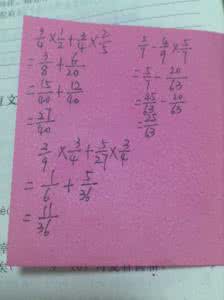 3/4 × 1/2 + 3/4 × 2/5
= 3/8 + 6/20
= 15/40 + 12/40
= 27/40
5/7 - 4/9 × 5/7
= 5/7 - 20/63
= 45/63 - 20/63
= 25/63
2/9 × 3/4 + 5/27 × 3/4
= 1/6 + 5/36
= 11/36
文